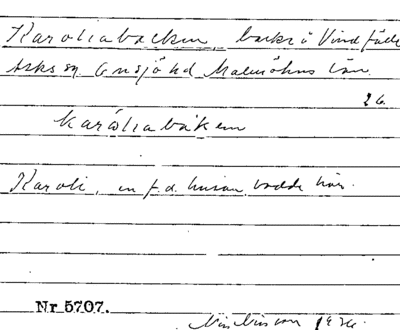 Karoliabacken, backe i Vindfälle
Asks sn Onsjö hd Malmöhus län.
26.
karåliabäken
Karoli, en f.d. husar bodde här.
Nr 5707.
1926.